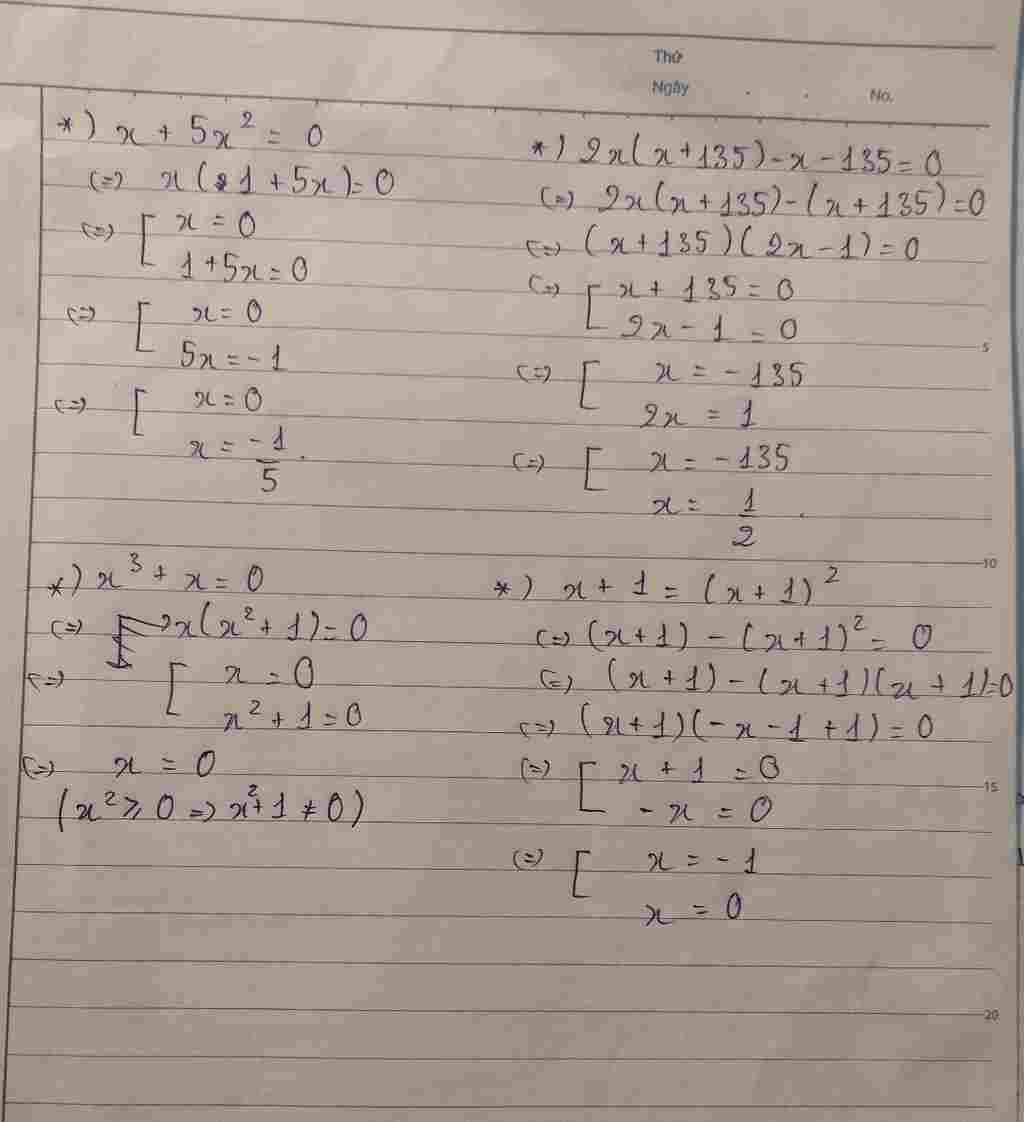 Thứ
Ngày . . No.
*) x + 5x² = 0
(=) x(1 + 5x) = 0
(=) [ x = 0
1 + 5x = 0
(=) [ x = 0
5x = -1
(=) [ x = 0
x = -1/5.
*) 2x(x+135) - x - 135 = 0
(=) 2x(x+135) - (x+135) = 0
(=) (x+135)(2x-1) = 0
(=) [ x + 135 = 0
2x - 1 = 0
(=) [ x = -135
2x = 1
(=) [ x = -135
x = 1/2.
*) x³ + x = 0
(=) x(x²+1) = 0
(=) [ x = 0
x² + 1 = 0
(=) x = 0
(x² ⩾ 0 => x²+1 ≠ 0)
*) x + 1 = (x+1)²
(=) (x+1) - (x+1)² = 0
(=) (x+1) - (x+1)(x+1) = 0
(=) (x+1)(-x-1+1) = 0
(=) [ x + 1 = 0
-x = 0
(=) [ x = -1
x = 0
5
10
15
20